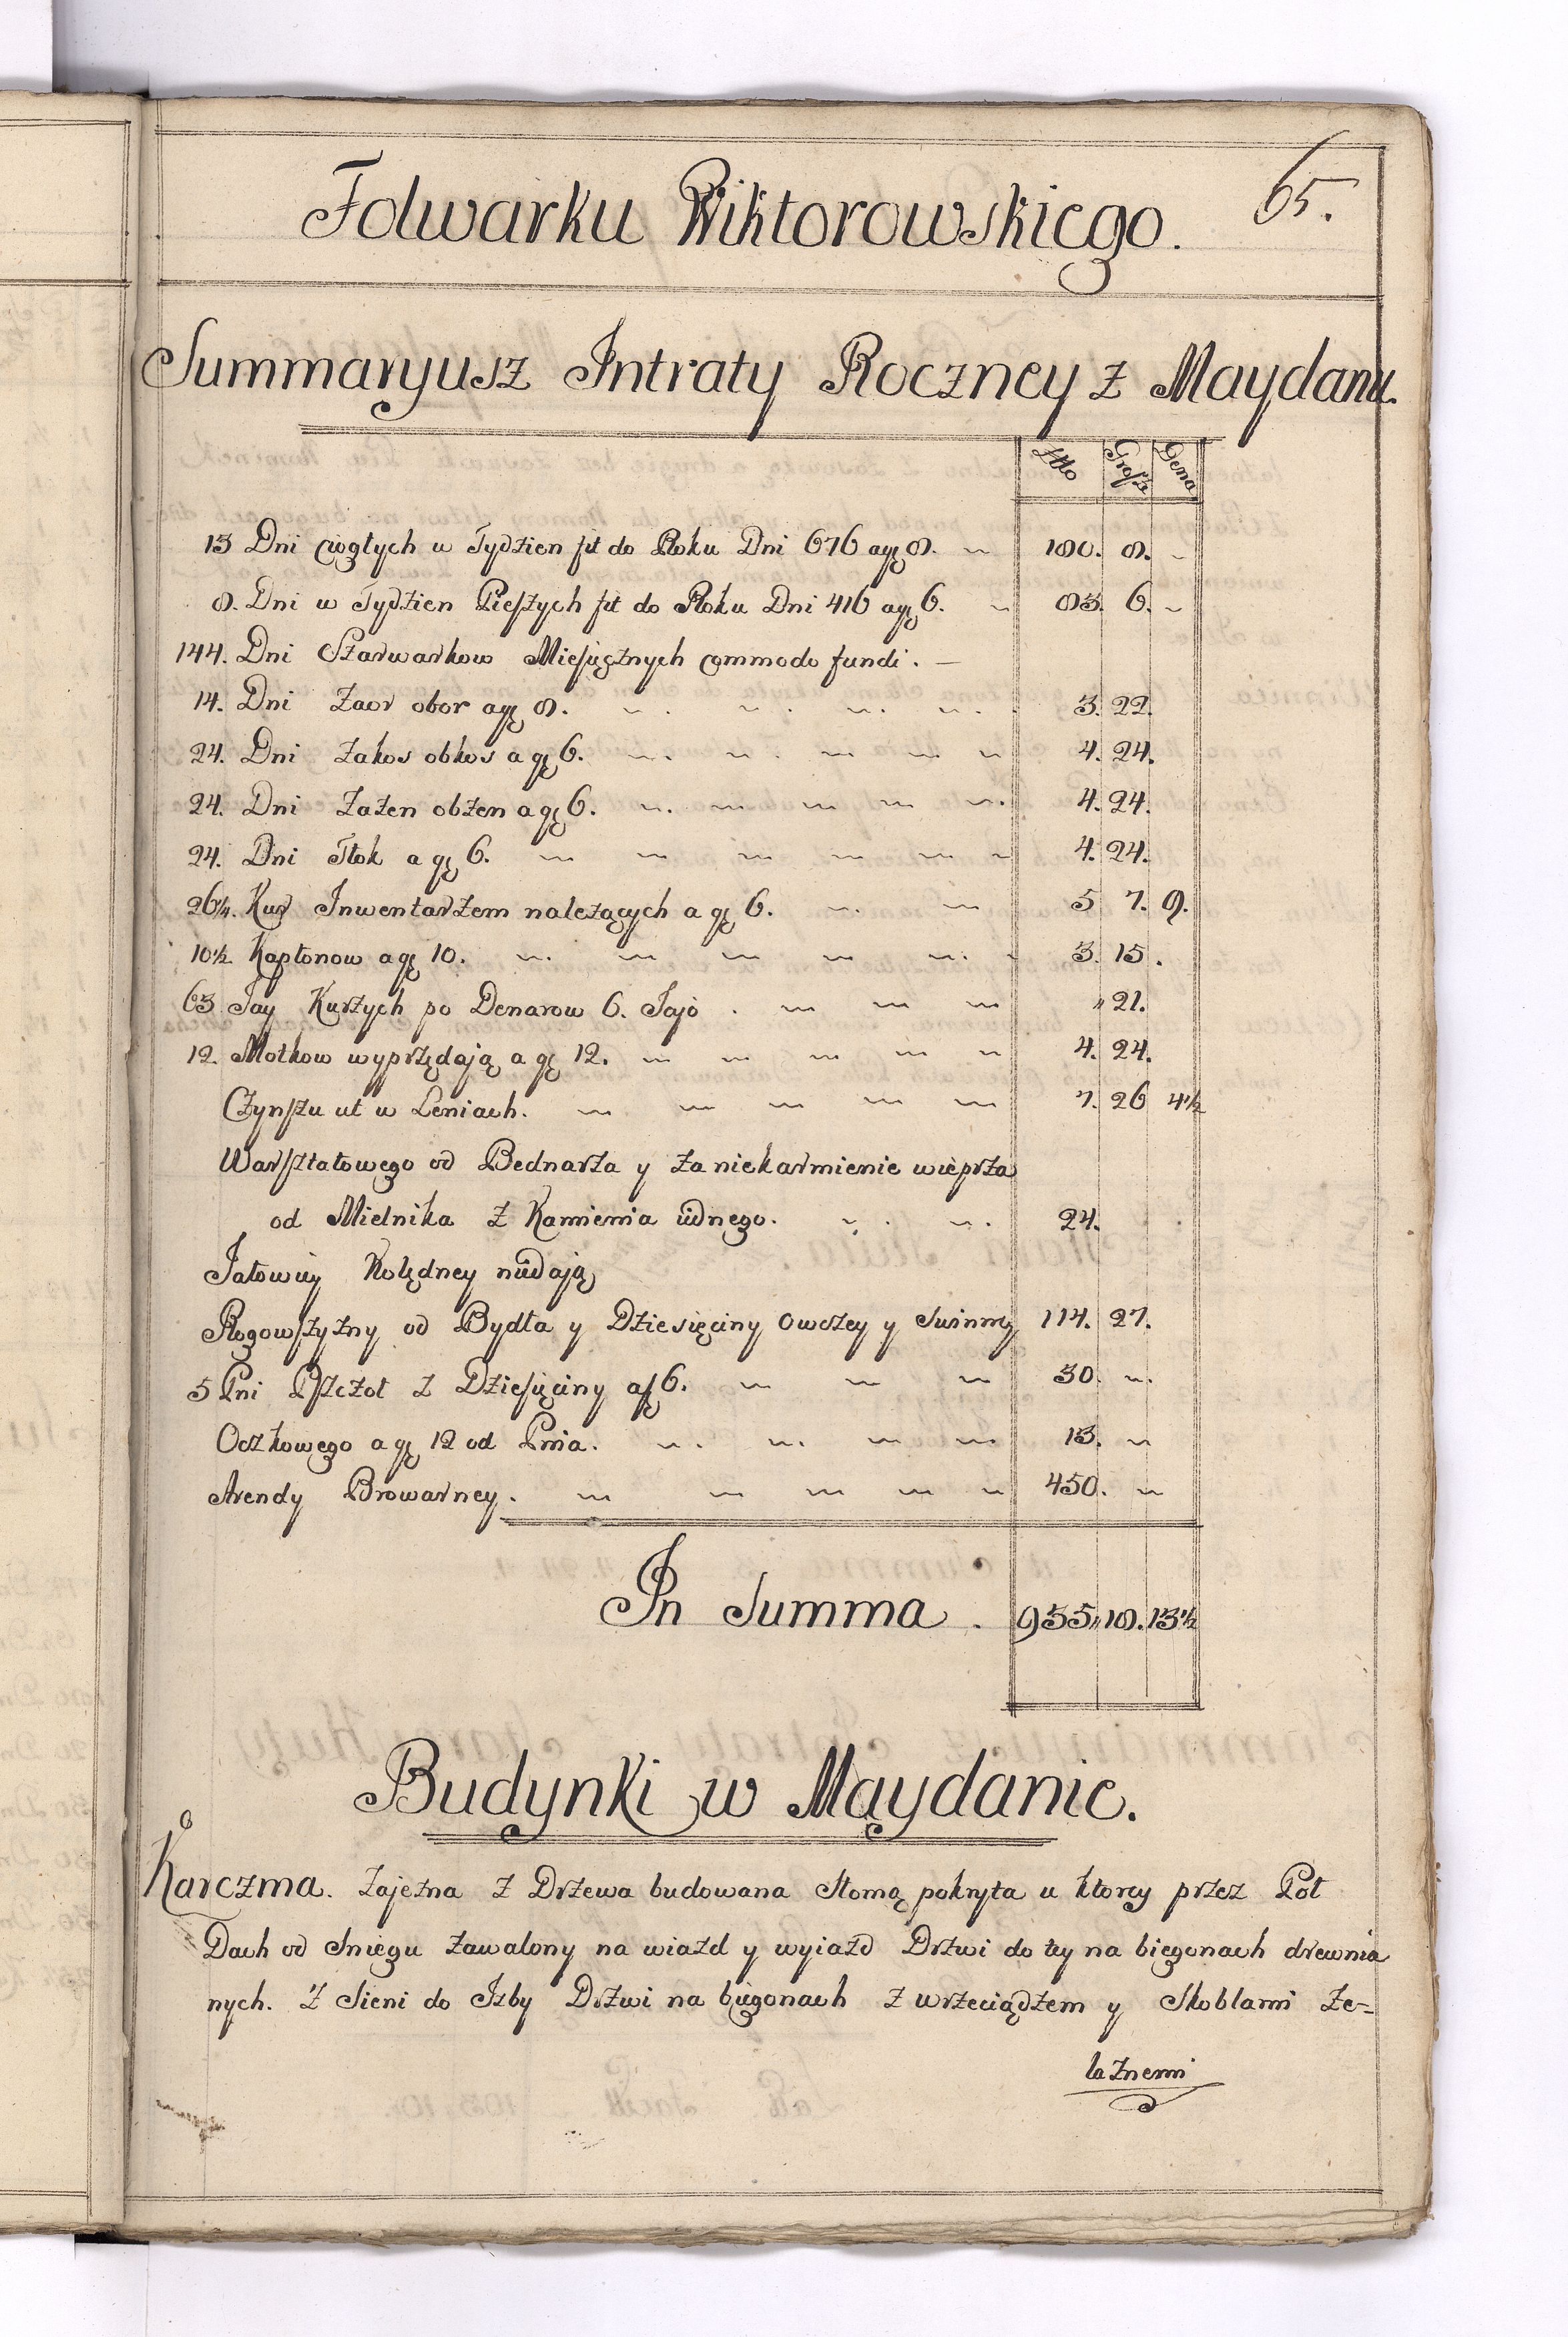 65.
Folwarku Wiktorowskiego.
Summaryusz Intraty Roczney z Maydanu.
Złto Grosz Dena
13 Dni ciągłych w Tydzien fit do Roku Dni 676 a gr 8. 180. 8.
8. Dni w Tydzien Pieszych fit do Roku Dni 416 a gr 6. 83. 6.
144. Dni Szarwarkow Miesięcznych commodo fundi.
14. Dni Zaor obor a gr 8. 3. 22.
24. Dni Zakos obkos a gr 6. 4. 24.
24. Dni Zażen obżen a gr 6. 4. 24.
24. Dni Tłok a gr 6. 4. 24.
26¼. Kur Inwentarzem należących a gr 6. 5 7. 9.
10½ Kapłonow a gr 10. 3. 15.
63 Jay Kurzych po Denarow 6. Jajo. " 21.
12. Motkow wyprzędają a gr 12. 4. 24.
Czynszu ut w Leniach. 7. 26 4½
Warsztatowego od Bednarza y za niekarmienie wieprza
od Mielnika z Kamienia iidnego. 24.
Jałowicy Kolędney niedają
Rogowszyzny od Bydła y Dziesięciny owczey y Swinney 114. 27.
5 Pni Pszczoł z Dziesięciny a f 6. 30.
Oczkowego a gr 12 od Pnia. 13.
Arendy Browarney. 450.
In Summa. 935,, 18. 13½
Budynki w Maydanie.
Karczma. Zajezna z Drzewa budowana Słomą pokryta u ktorey przez Poł
Dach od Sniegu zawalony na wiazd y wyiazd Drzwi do tey na biegonach drewnia
nych. Z Sieni do Izby Drzwi na biegonach z wrzeciądzem y Skoblami Że-
laznemi